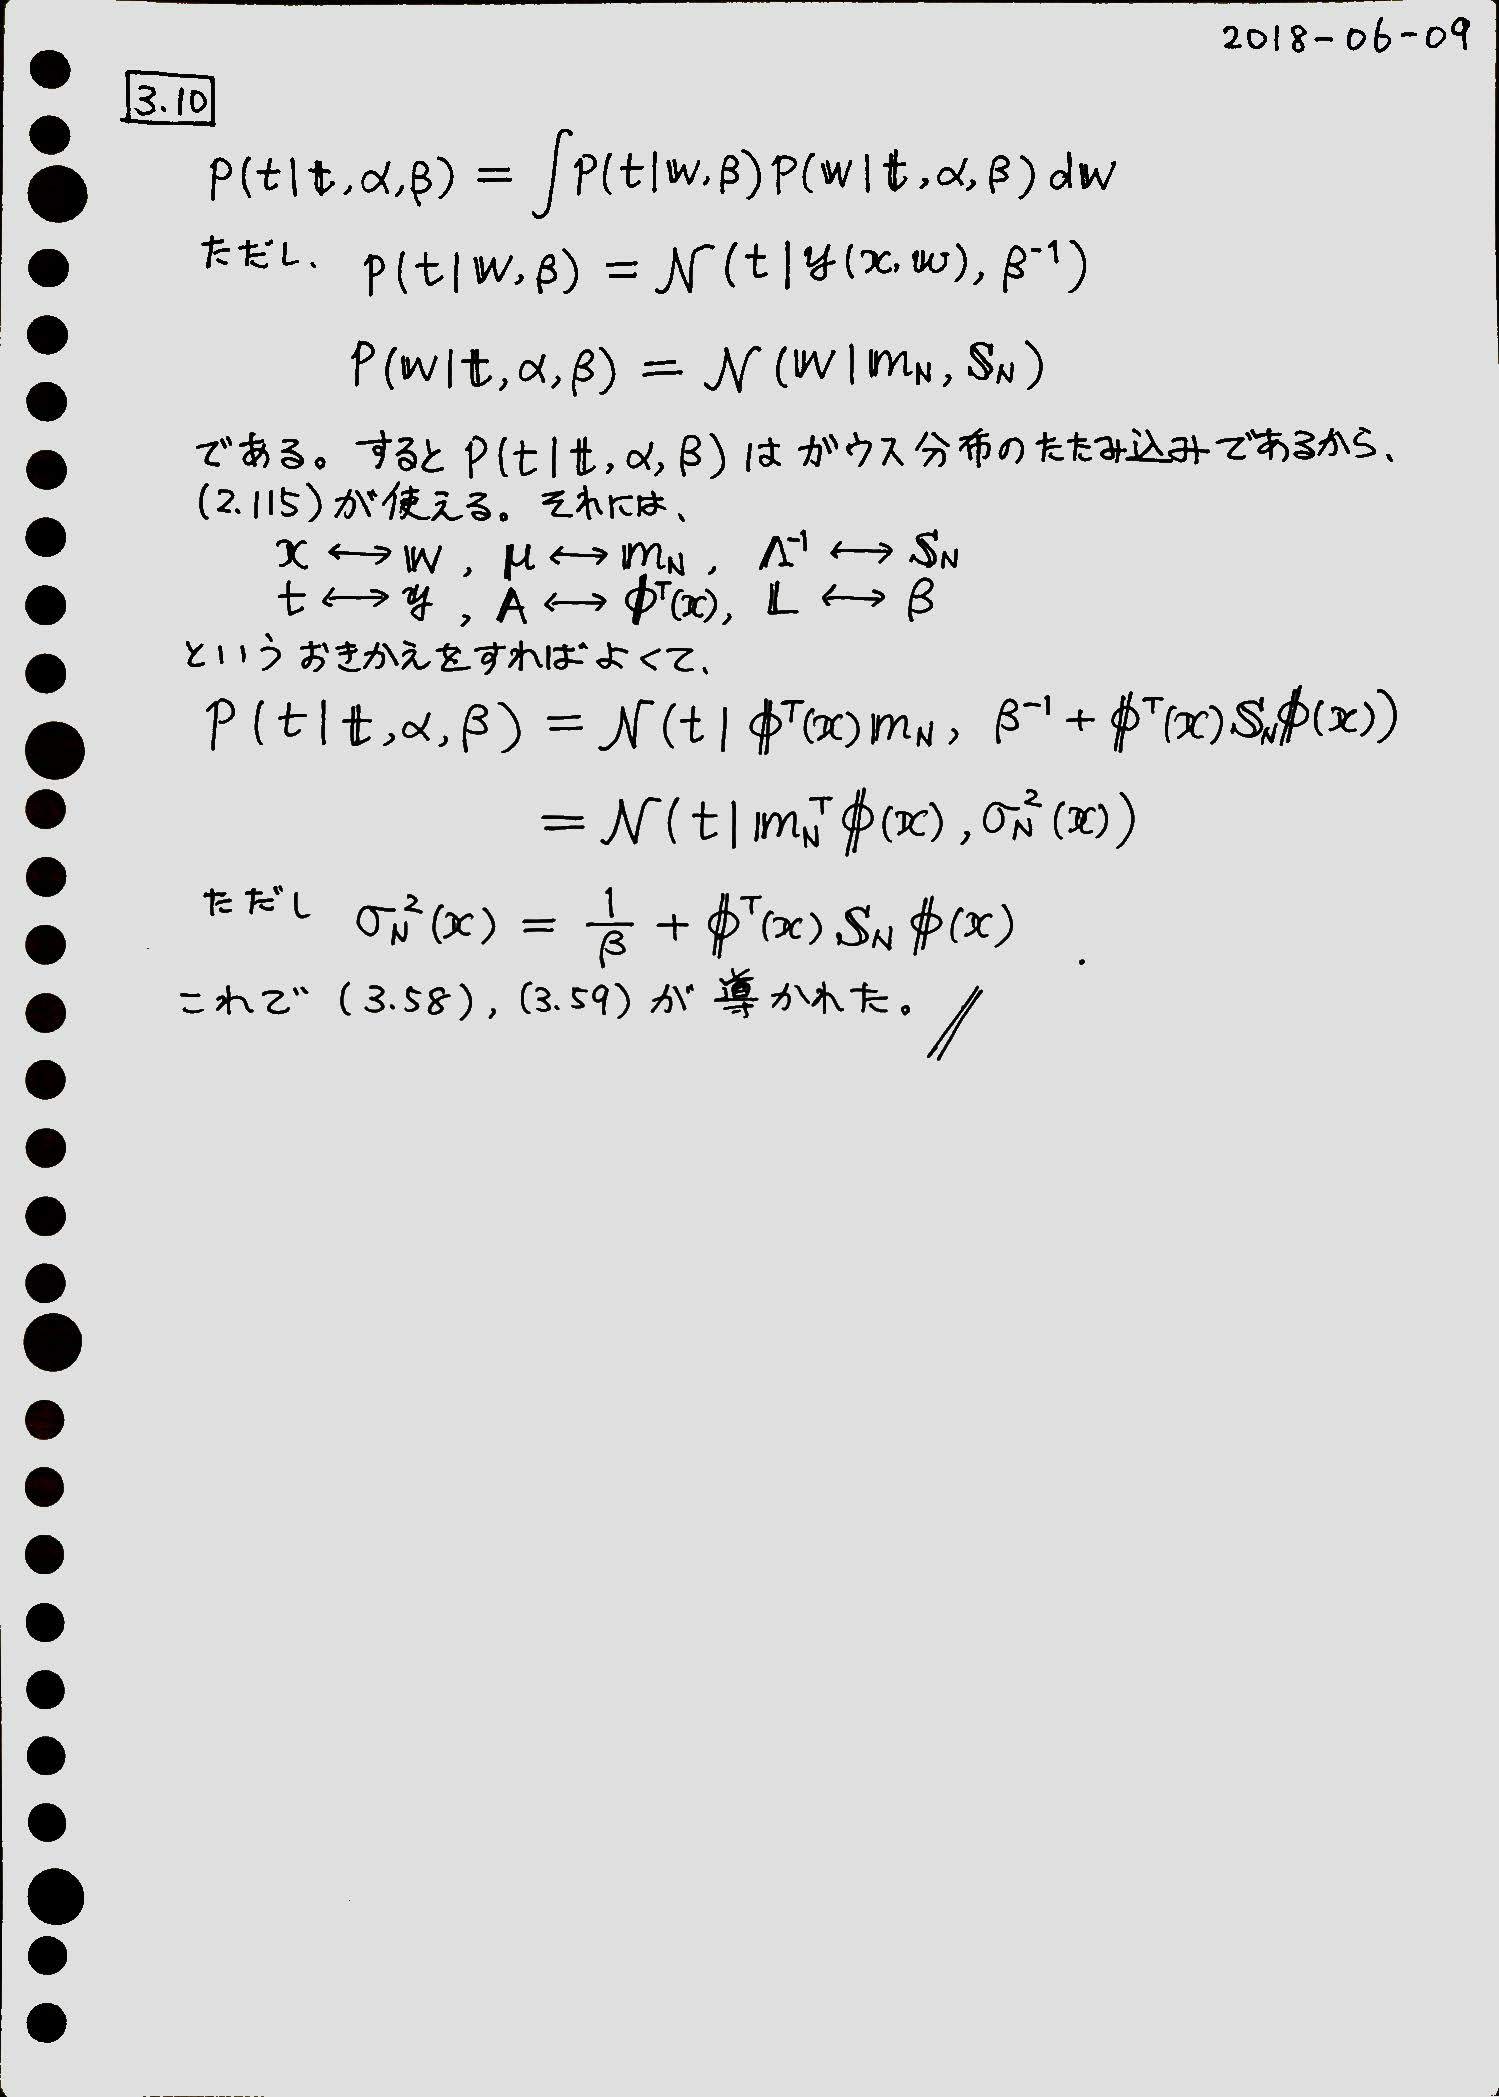 2018-06-09
3.10
p(t|𝕥,α,β) = ∫p(t|𝕨,β)p(𝕨|𝕥,α,β)d𝕨
ただし、 p(t|𝕨,β) = 𝒩(t|y(𝕩,𝕨), β⁻¹)
p(𝕨|𝕥,α,β) = 𝒩(𝕨|𝕞_N, 𝕊_N)
である。すると p(t|𝕥,α,β) は ガウス分布のたたみ込みであるから、
(2.115)が使える。それには、
𝕩 ↔ 𝕨 , μ ↔ 𝕞_N , Λ⁻¹ ↔ 𝕊_N
t ↔ y , A ↔ ϕᵀ(𝕩), 𝕃 ↔ β
というおきかえをすればよくて、
p(t|𝕥,α,β) = 𝒩(t|ϕᵀ(𝕩)𝕞_N, β⁻¹ + ϕᵀ(𝕩)𝕊_Nϕ(𝕩))
= 𝒩(t|𝕞_Nᵀϕ(𝕩), σ_N²(𝕩))
ただし σ_N²(𝕩) = 1/β + ϕᵀ(𝕩)𝕊_Nϕ(𝕩)
これで (3.58), (3.59) が 導かれた。//